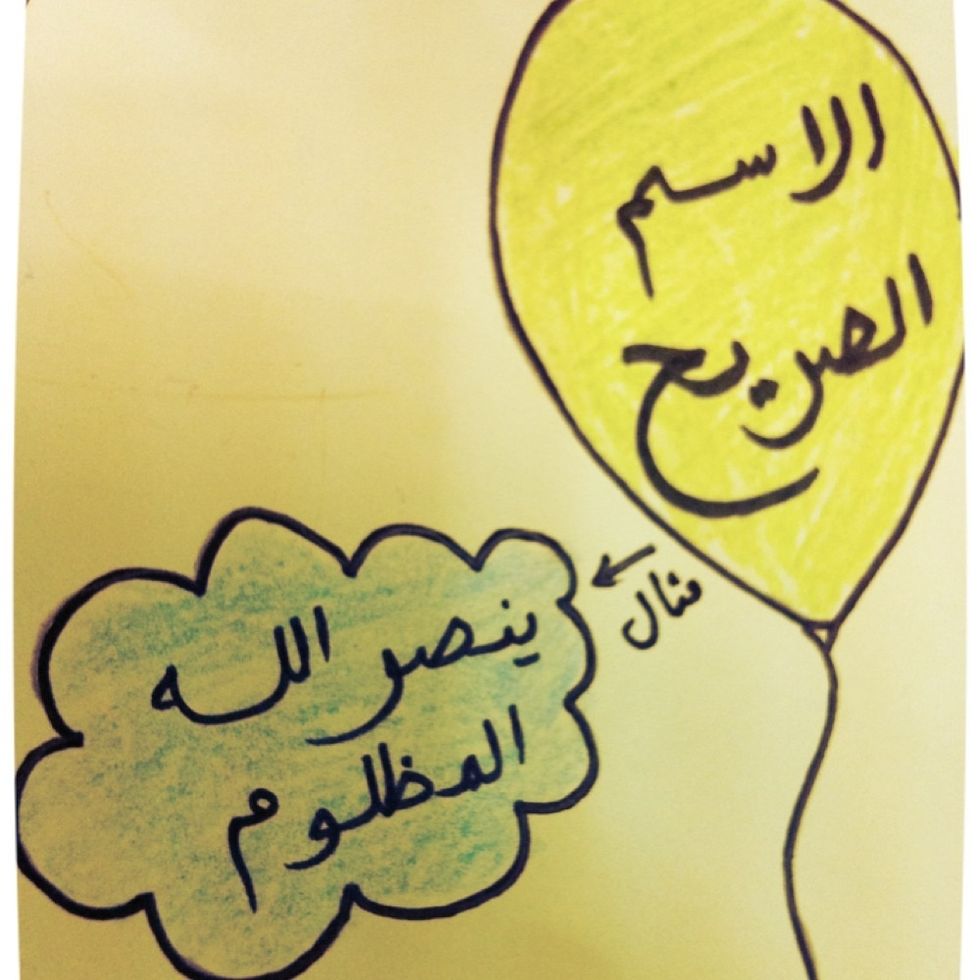 الاسم
الصريح
مثال
ينصر الله
المظلوم